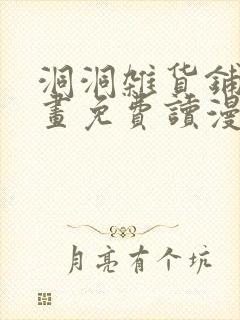 洞洞雜货鋪
畫免費讀漫
月亮有个坑